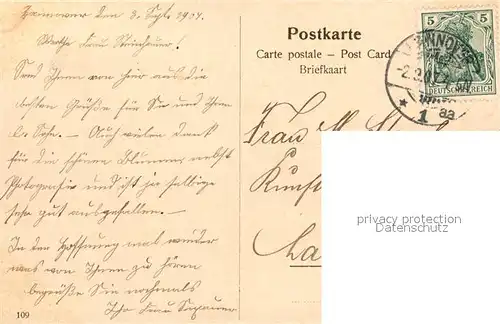 Hannover den 3. Sept. 1904.
Werthe Frau Steinhauer!
Send Ihnen von hier aus die
besten Grüße für Sie und Ihren
lb. Sohn. — Auch vielen Dank
für die schönen Blumen nebst
Photografie und ist ja selbige
sehr gut ausgefallen. —
In der Hoffnung mal wieder
was von Ihnen zu hören
begrüße Sie nochmals
Ihr Frau
109
Postkarte
Carte postale — Post Card
Briefkaart
5 5
DEUTSCHES REICH
HANNOVER
1
aa
Frau
Kunst
privacy protection
Datenschutz